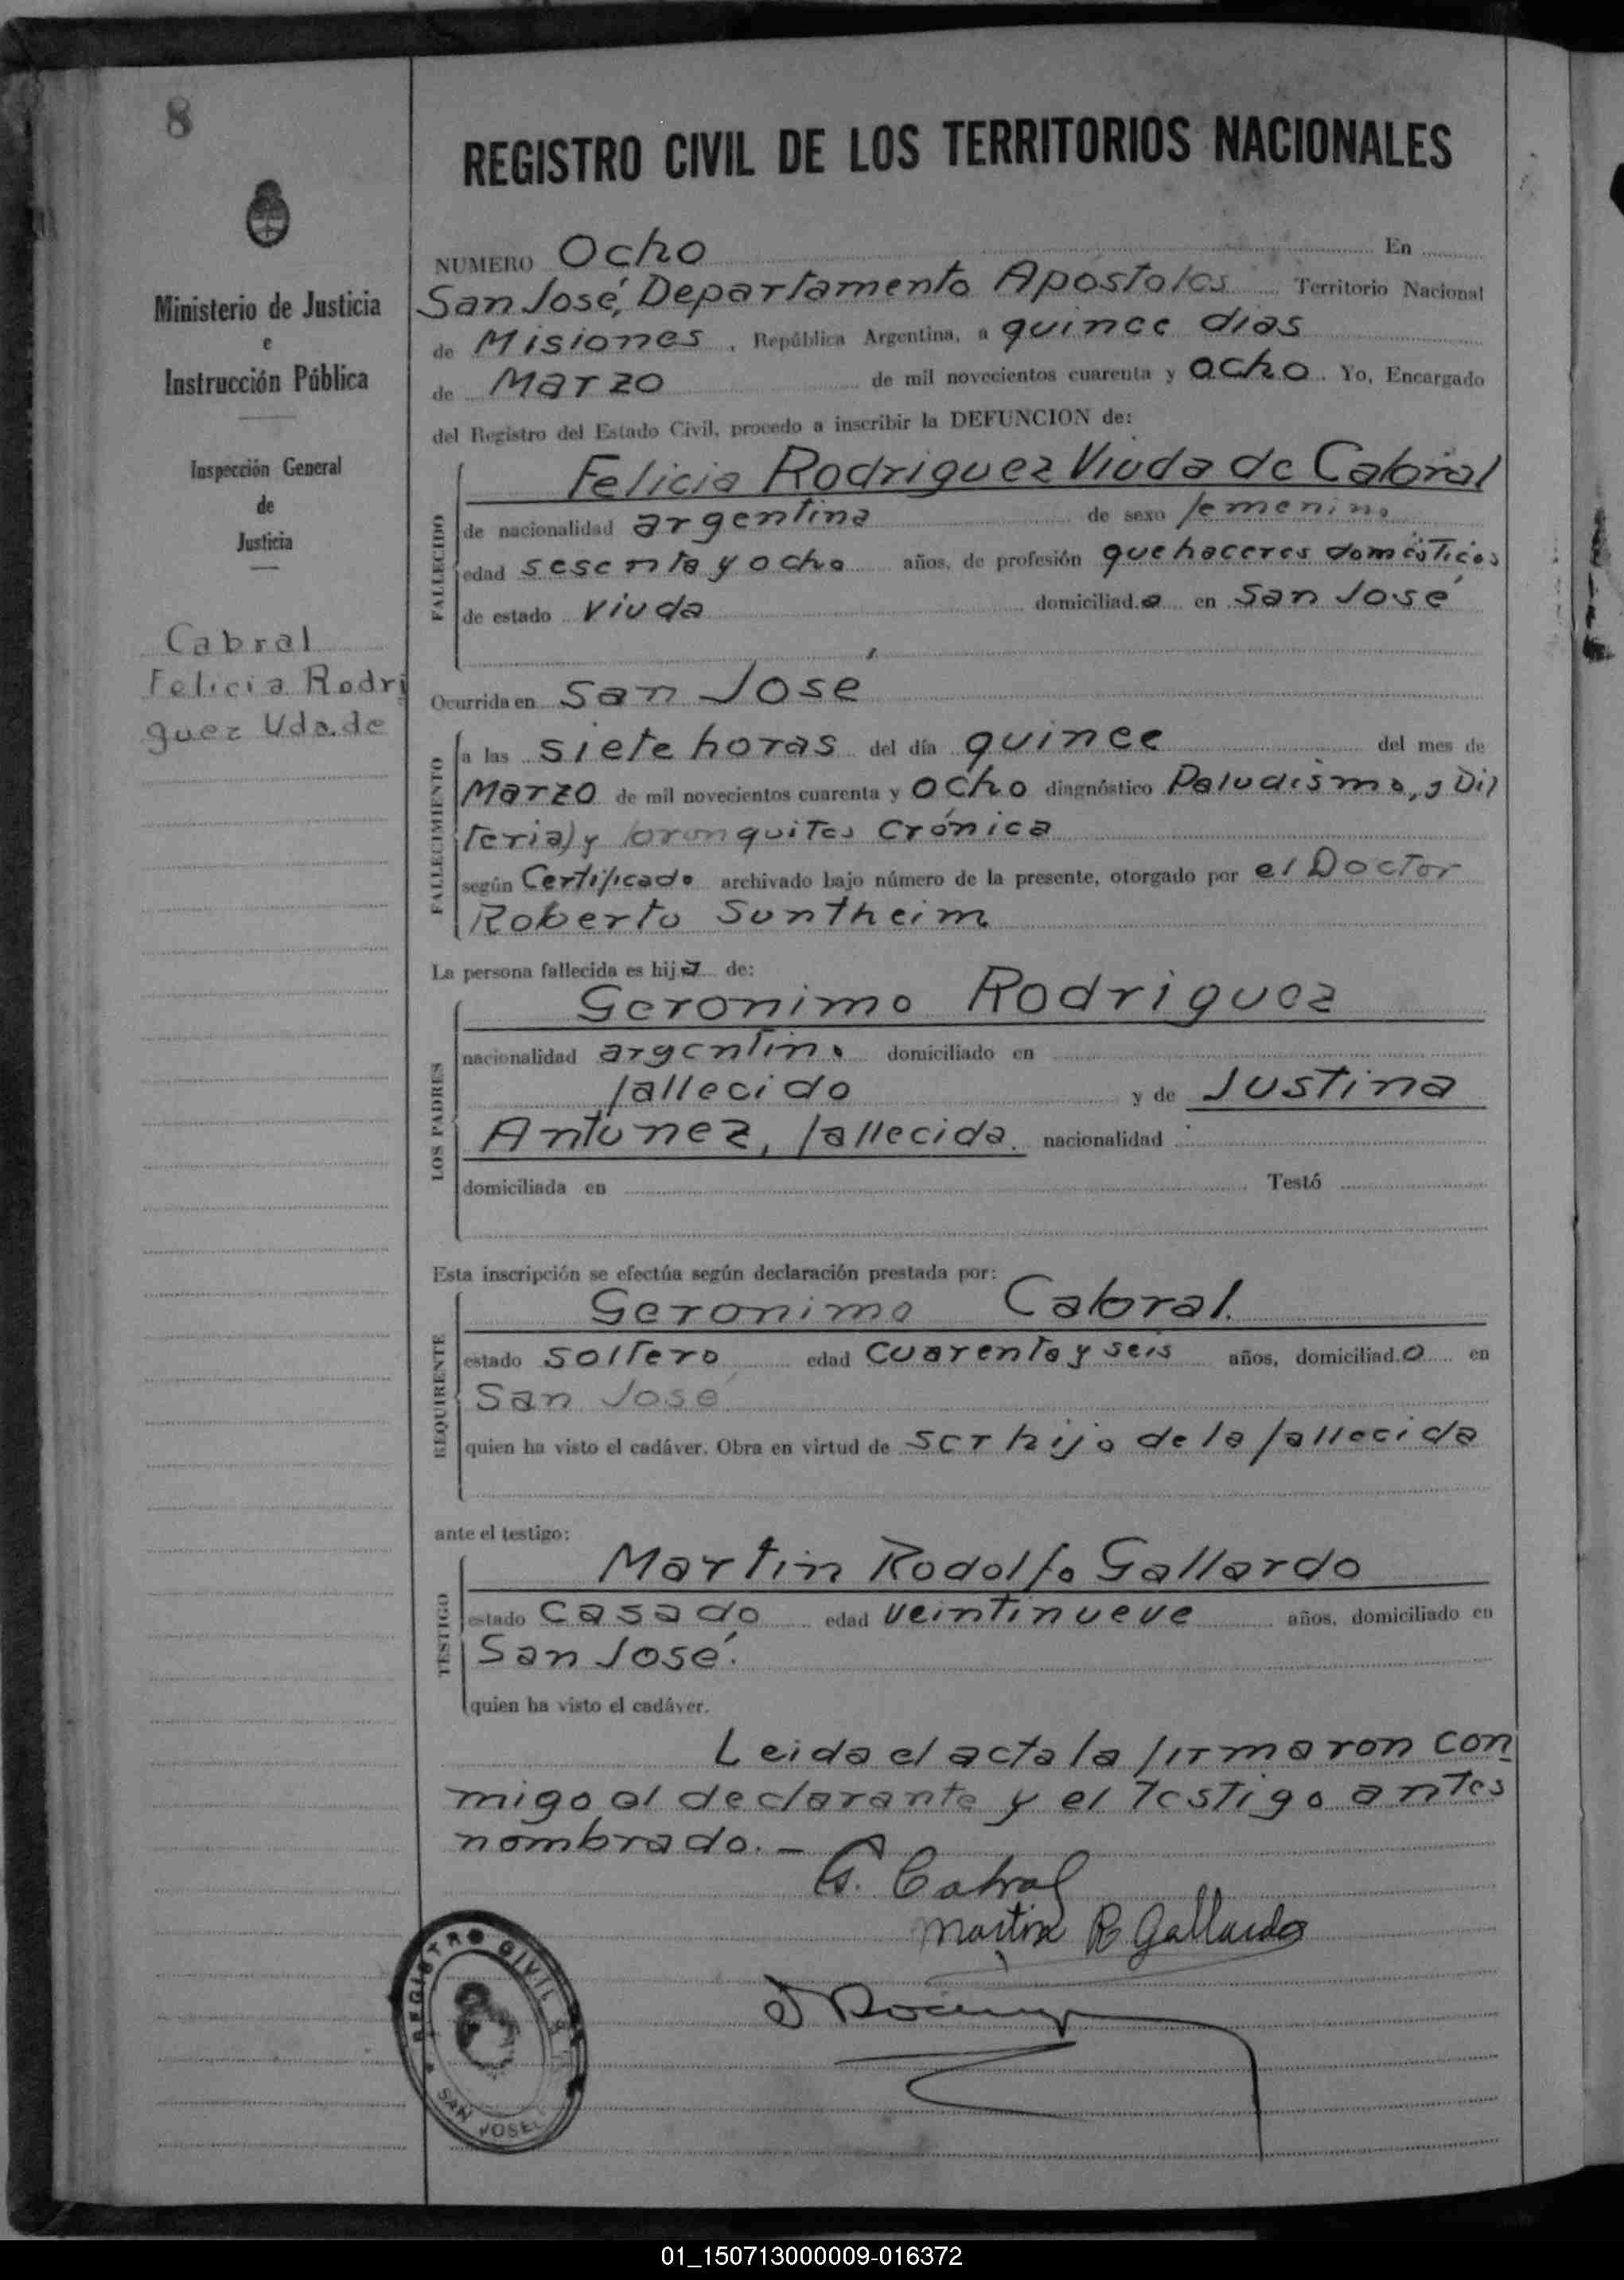 8
Ministerio de Justicia
e
Instrucción Pública
Inspección General
de
Justicia
Cabral
Felicia Rodri
guez Vda. de
REGISTRO CIVIL DE LOS TERRITORIOS NACIONALES
NUMERO Ocho En
San José, Departamento Apostoles Territorio Nacional
de Misiones, República Argentina, a quince dias
de Marzo de mil novecientos cuarenta y ocho. Yo, Encargado
del Registro del Estado Civil, procedo a inscribir la DEFUNCION de:
Felicia Rodriguez Viuda de Cabral
FALLECIDO
de nacionalidad argentina de sexo femenino
edad sesenta y ocho años, de profesión quehaceres domésticos
de estado viuda domiciliada en San José
Ocurrida en San José
FALLECIMIENTO
a las siete horas del día quince del mes de
Marzo de mil novecientos cuarenta y ocho diagnóstico Paludismo,
teria) y bronquites Crónica
según Certificado archivado bajo número de la presente, otorgado por el Doctor
Roberto Suntheim
La persona fallecida es hija de:
Geronimo Rodriguez
LOS PADRES
nacionalidad argentino domiciliado en
fallecido y de Justina
Antunez, fallecida. nacionalidad
domiciliada en Testó
Esta inscripción se efectúa según declaración prestada por:
Geronimo Cabral.
REQUIRENTE
estado soltero edad cuarenta y seis años, domiciliado en
San José
quien ha visto el cadáver. Obra en virtud de ser hijo de la fallecida
ante el testigo:
Martin Rodolfo Gallardo
TESTIGO
estado casado edad veintinueve años, domiciliado en
San José.
quien ha visto el cadáver.
Leida el acta la firmaron con
migo el declarante y el testigo antes
nombrado.-
G. Cabral
Martin R Gallardo
REGISTRO CIVIL
SAN JOSE
01_150713000009-016372